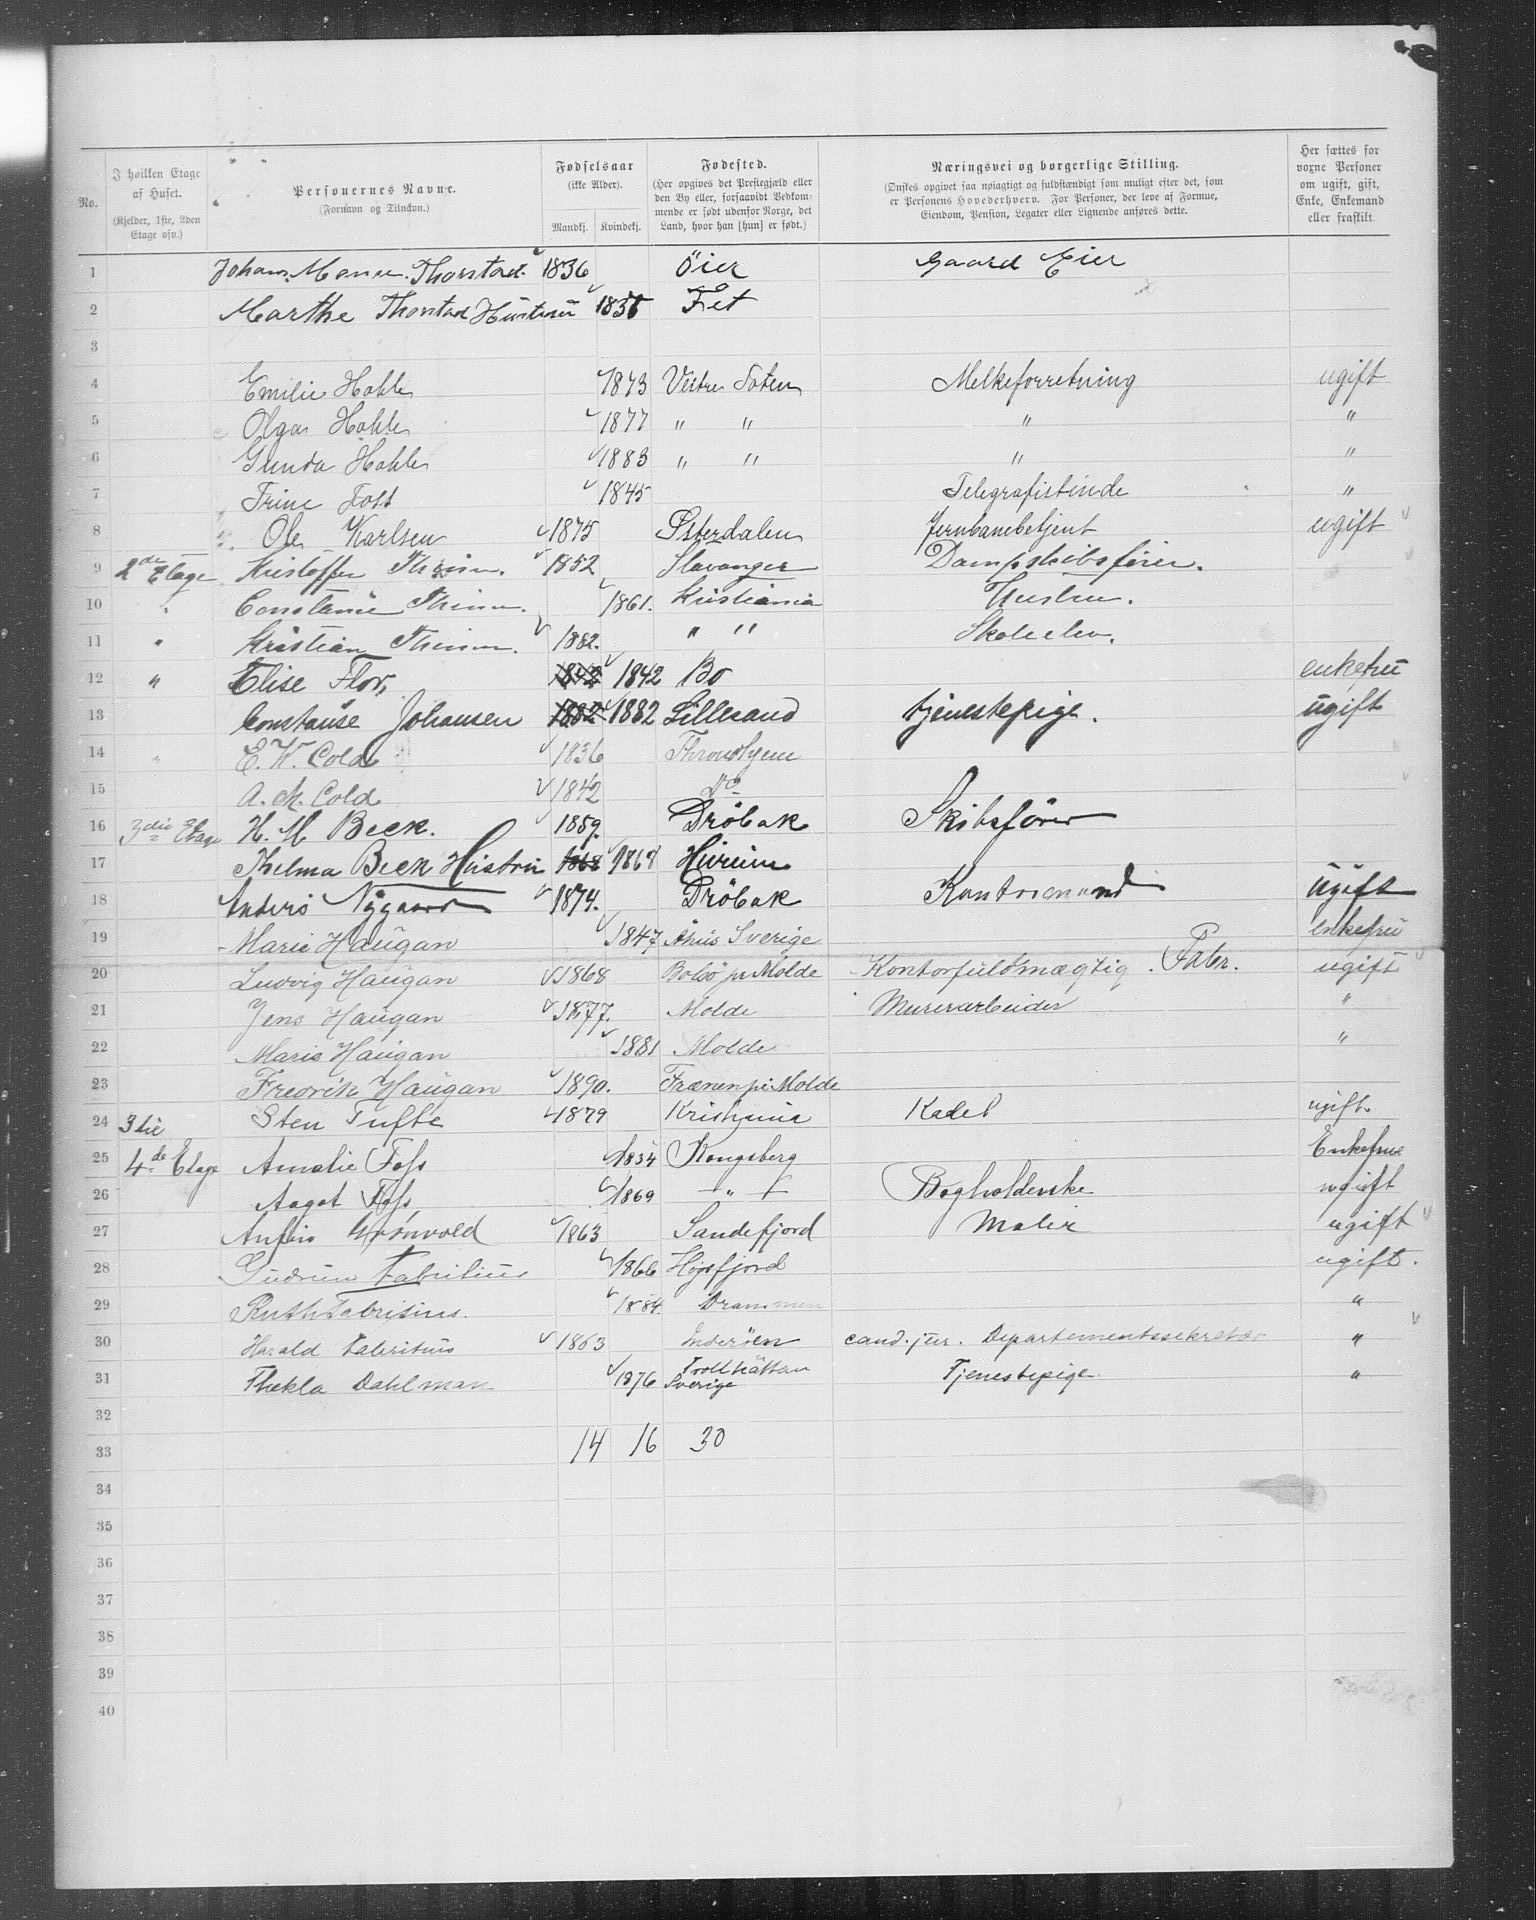 No. | I hvilken Etage af Huset. (Kjelder, 1ste, 2den Etage osv.) | Personernes Navne. (Fornavn og Tilnavn.) | Fødselsaar (ikke Alder). Mandkj. Kvindekj. | Fødested. (Her opgives det Prestegjæld eller den By eller, forsaavidt Vedkommende er født udenfor Norge, det Land, hvor han [hun] er født.) | Næringsvei og borgerlige Stilling. (Ønskes opgivet saa nøiagtigt og fuldstændigt som muligt efter det, som er Personens Hovederhverv. For Personer, der leve af Formue, Eiendom, Pension, Legater eller Lignende anføres dette. | Her sættes for voxne Personer om ugift, gift, Enke, Enkemand eller fraskilt.
1 Johan Thorstad. 1836 Öier Gaard Eier
2 Marthe Thorstad Hustru Fet
3
4 Emilie Hohle 1873 Vestre Toten Melkeforretning ugift
5 Olga Hohle 1877 " " " "
6 Gunda Hohle 1883 " " " "
7 Trine 1845 Telegrafistinde "
8 Ole Karlsen 1875 Østerdalen Jernbanebetjent ugift
9 2de Etage Kristoffer 1852 Stavanger Dampskibsfører.
10 " 1861. Kristiania Hustru.
11 " Kristian 1882. " " Skoleelev.
12 " Elise Flor, 1842 1842 Bo enkefrü
13 Constanse Johansen 1882 1882 Lillesand tjenestepige. ügift
14 " E. W. Cold 1836 Throndhjem
15 A. M. Cold 1842 Do
16 3die Etage H. M Beck. 1859. Dröbak Skibsfører
17 Thelma Beck Hüstrü 1868 1868 Hürum
18 Anders Nygaard 1874. Dröbak Kontormand ügift
19 Marie Haügan 1847. Åhus Sverige Enkefrü
20 Ludvig Haügan 1868 Bolsö pr Molde Kontorfuldmægtig. Fabr. ugift
21 Jens Haügan 1877. Molde Murerarbeider "
22 Marie Haügan 1881 Molde "
23 Fredrik Haügan 1890. Frænen pr. Molde
24 3die Sten Tufte 1879 Kristiania Kadet ugift.
25 4de Etage Amalie Foss 1834 Kongsberg Enkefrue
26 Aagot Foss, 1869 — " — Bogholderske ugift
27 Anfin Grønvold 1863 Sandefjord Maler ugift
28 Gudrun Fabritius 1866 Høgsfjord ugift.
29 Ruth Fabritius. 1884. Drammen "
30 Harald Fabritius 1863 Inderöen cand. jur. Departementssekretær "
31 Thekla Dahlman 1876 Trollhättan Sverige Tjenestepige "
32
33 14 16 30
34
35
36
37
38
39
40